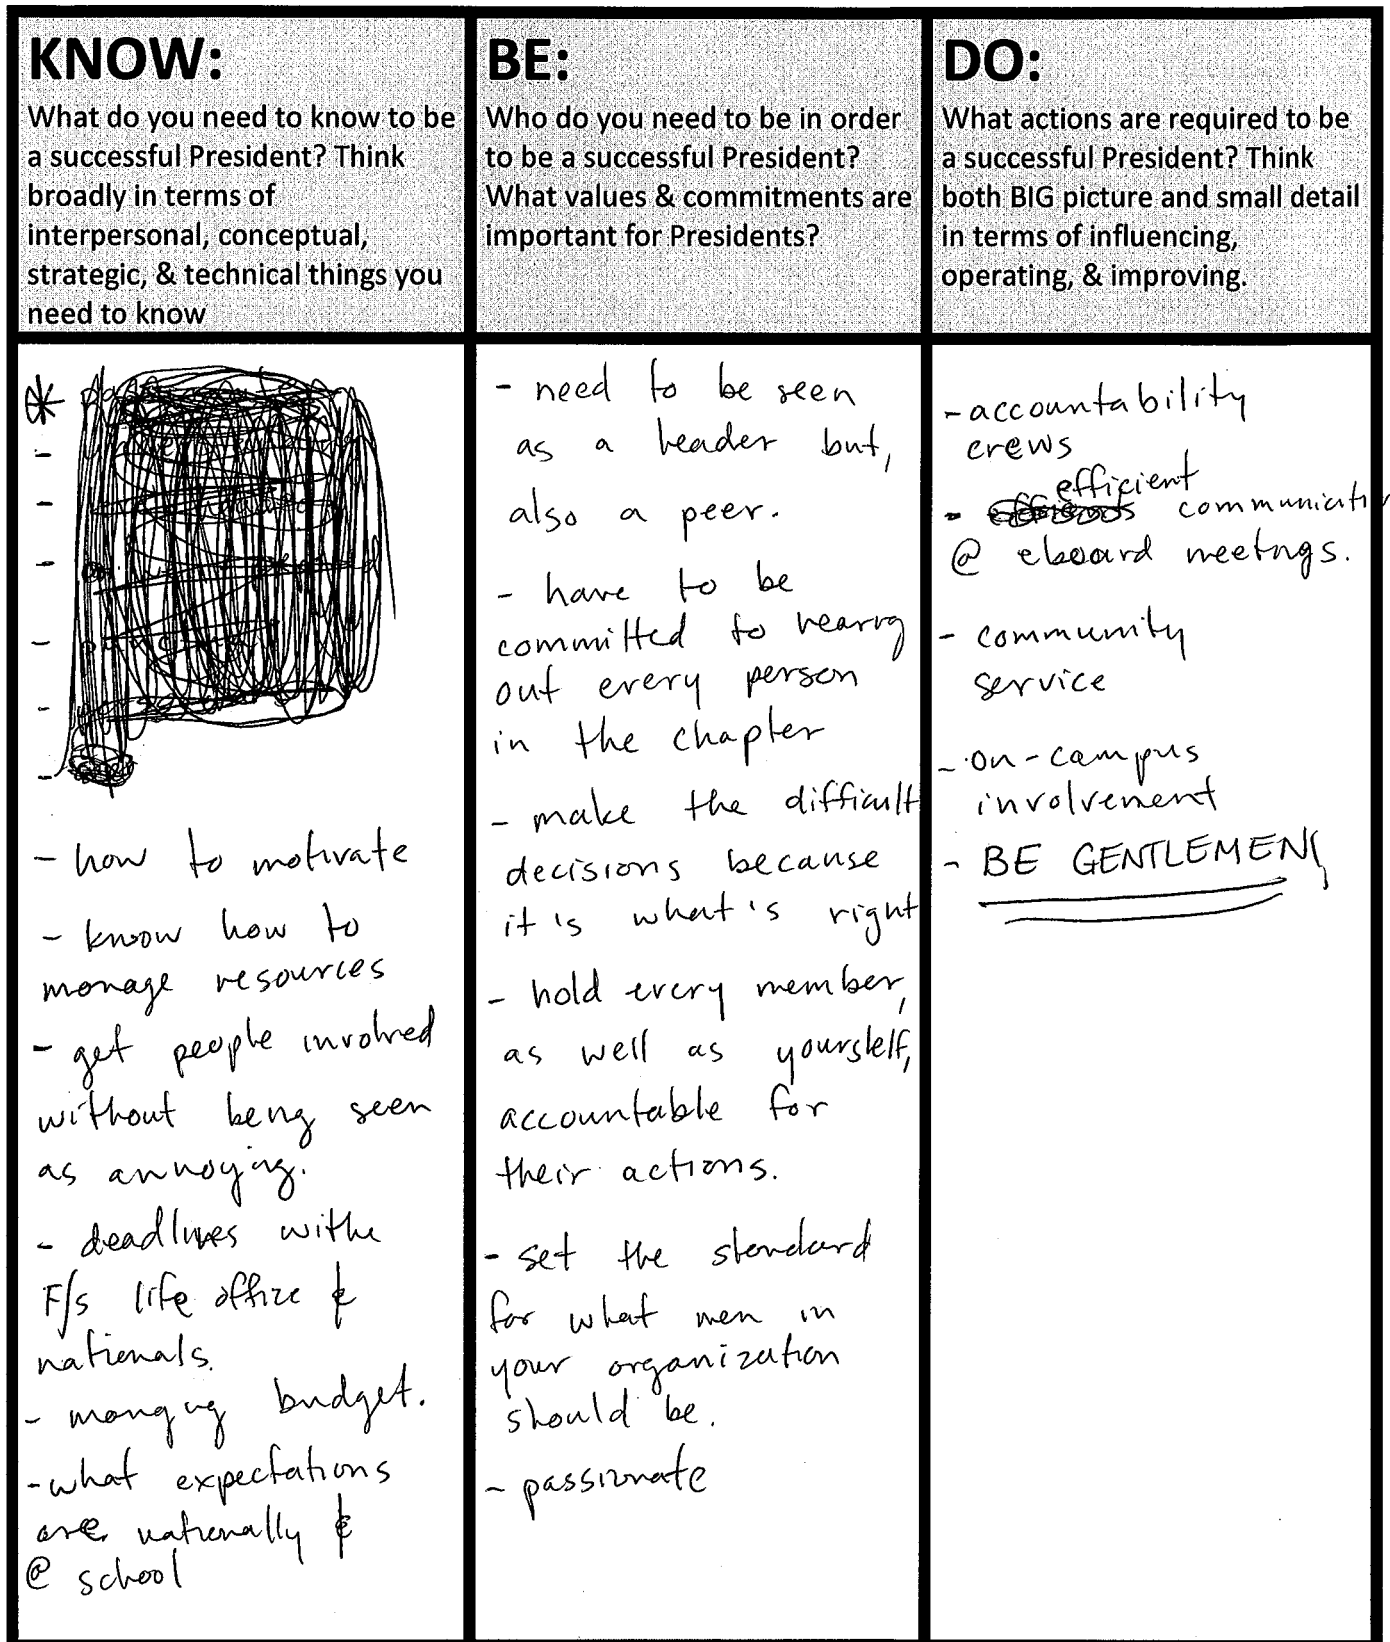 KNOW:
What do you need to know to be
a successful President? Think
broadly in terms of
interpersonal, conceptual,
strategic, & technical things you
need to know
- how to motivate
- know how to
manage resources
- get people involved
without being seen
as annoying.
- deadlines withe
F/s life office &
nationals.
- managing budget.
- what expectations
are nationally &
@ school
BE:
Who do you need to be in order
to be a successful President?
What values & commitments are
important for Presidents?
- need to be seen
as a leader but,
also a peer.
- have to be
committed to hearing
out every person
in the chapter
- make the difficult
decisions because
it's what's right
- hold every member,
as well as yourself,
accountable for
their actions.
- set the standard
for what men in
your organization
should be.
- passionate
DO:
What actions are required to be
a successful President? Think
both BIG picture and small detail
in terms of influencing,
operating, & improving.
- accountability
crews
- efficient communication
@ eboard meetngs.
- community
service
- on-campus
involvement
- BE GENTLEMEN